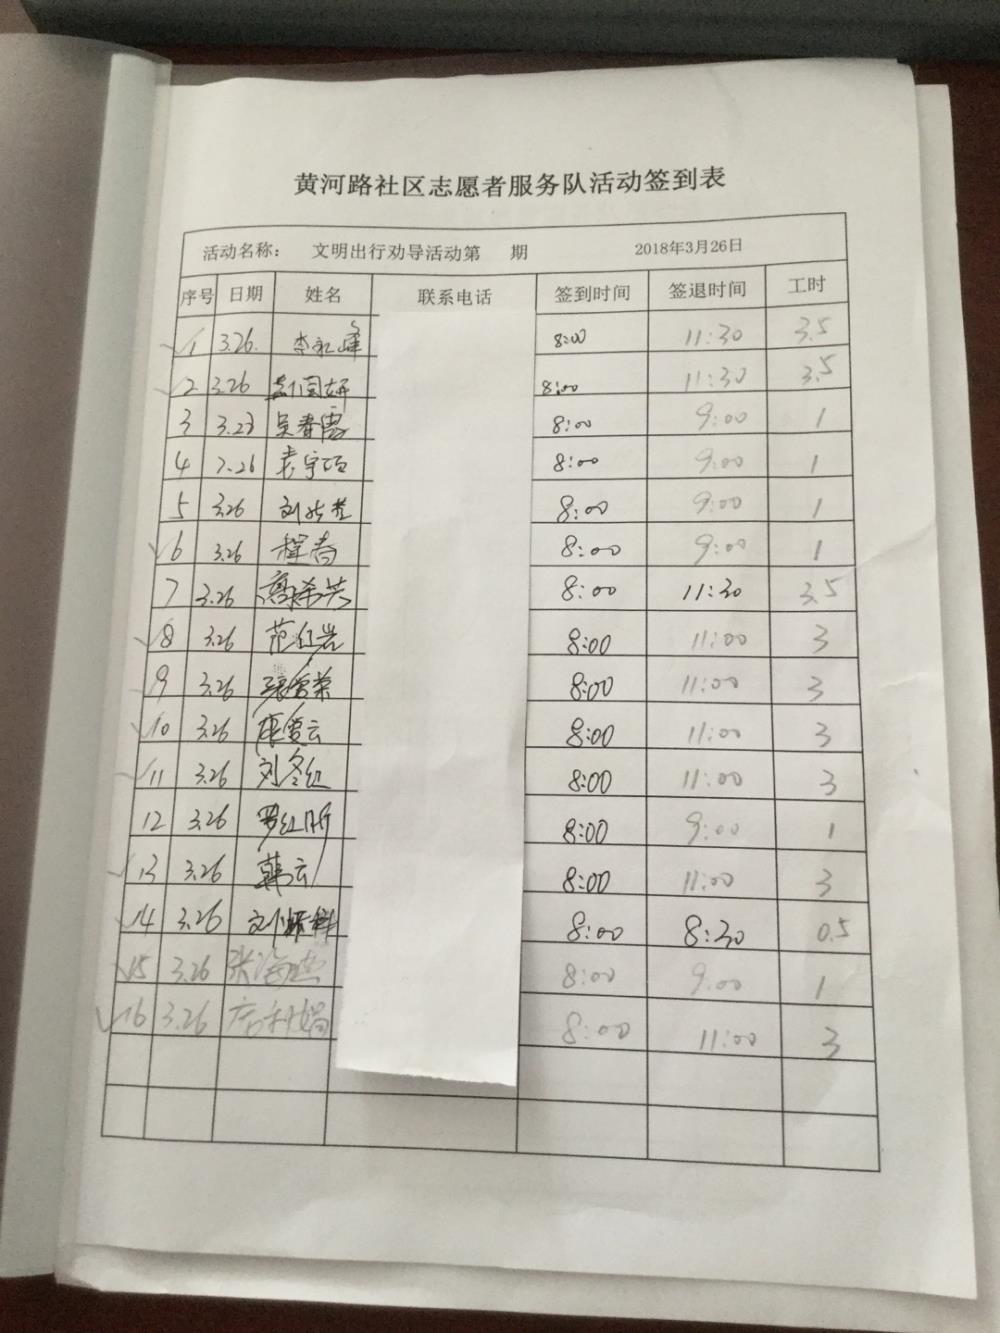 黄河路社区志愿者服务队活动签到表
活动名称： 文明出行劝导活动第 期 2018年3月26日
序号 日期 姓名 联系电话 签到时间 签退时间 工时
1 3.26. 李永峰 8:00 11:30 3.5
2 3.26 8:00 11:30 3.5
3 3.23 吴春霞 8:00 9:00 1
4 3.26 8:00 9:00 1
5 3.26 8:00 9:00 1
6 3.26 程春 8:00 9:00 1
7 3.26 高希英 8:00 11:30 3.5
8 3.26 范红岩 8:00 11:00 3
9 3.26 张雪荣 8:00 11:00 3
10 3.26 康雪云 8:00 11:00 3
11 3.26 刘冬红 8:00 11:00 3
12 3.26 罗红昕 8:00 9:00 1
13 3.26 韩云 8:00 11:00 3
14 3.26 8:00 8:30 0.5
15 3.26 张海燕 8:00 9:00 1
16 3.26 8:00 11:00 3